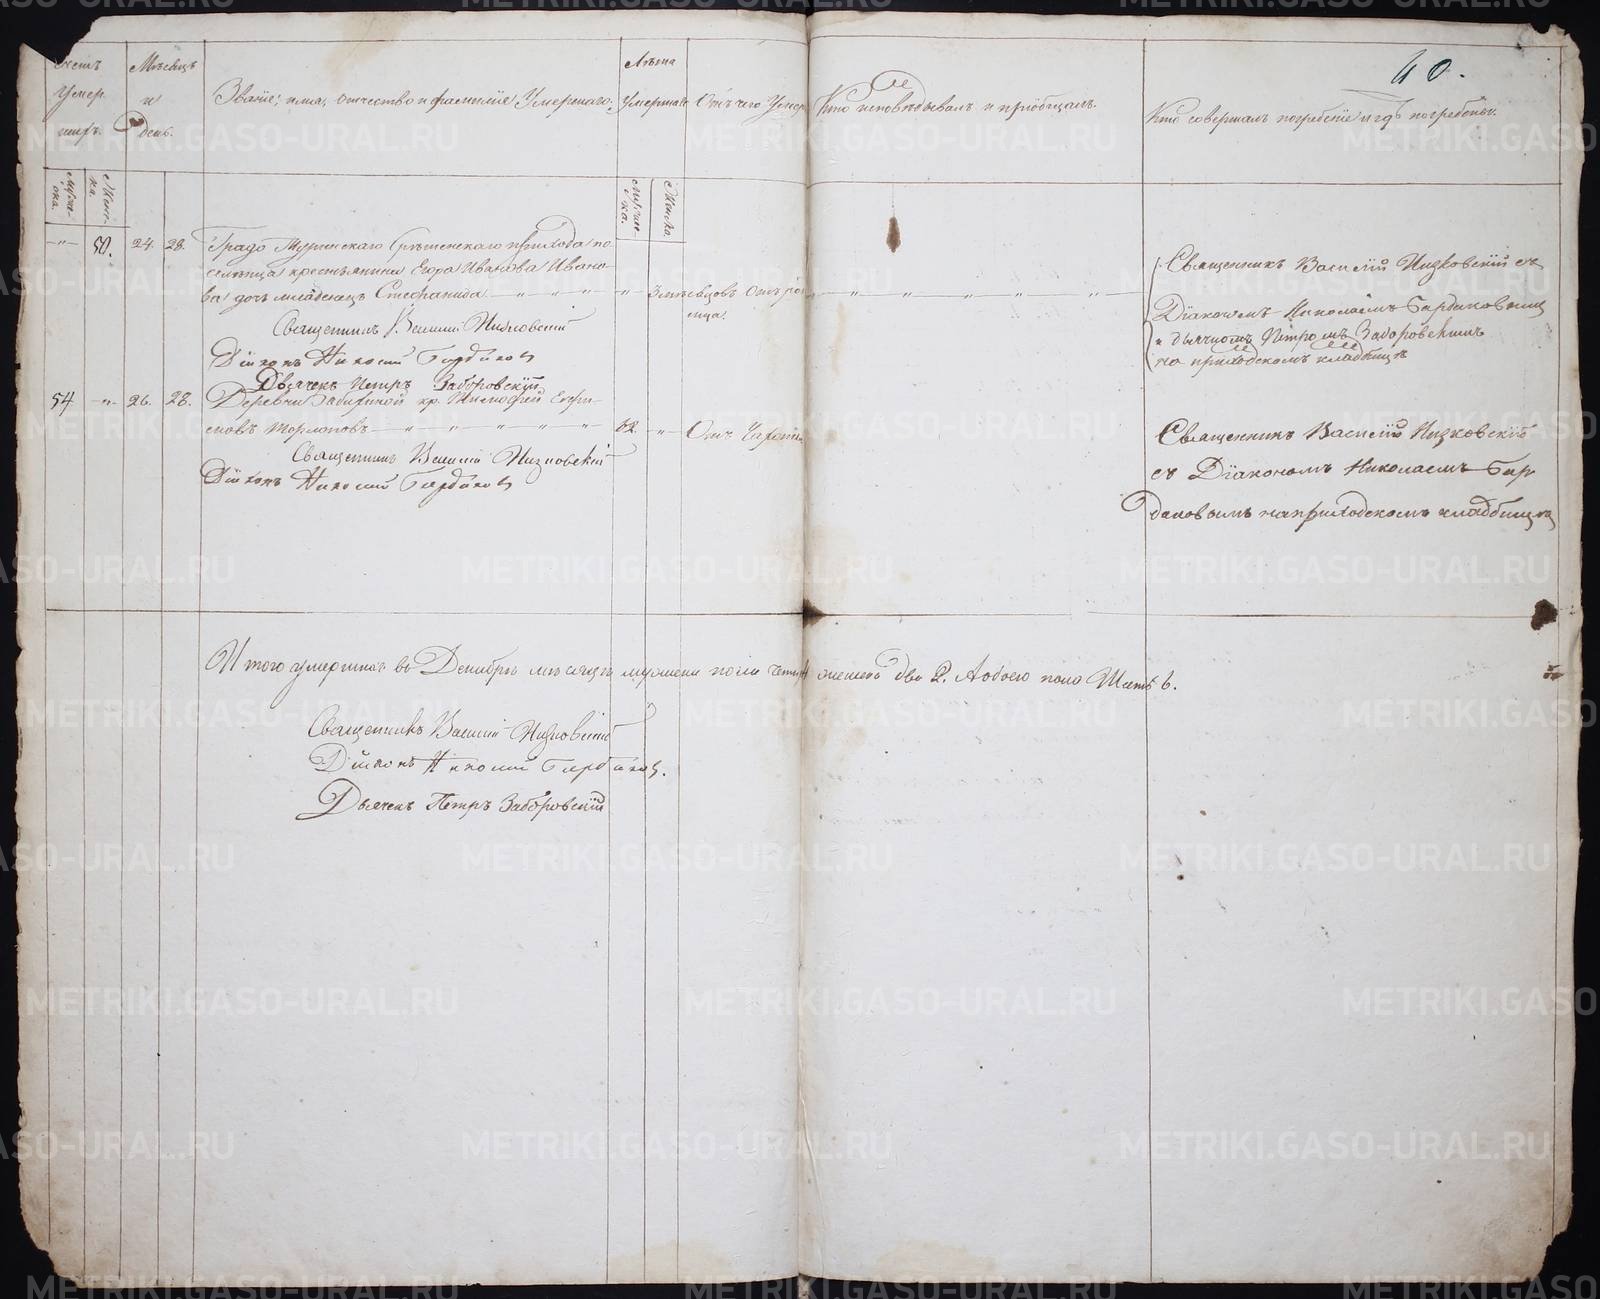 40.
Счетъ Умерших.
Мѣсяцъ и день.
Званіе, имя, отчество и фамиліе Умершаго.
Лѣта Умершаго
Отъ чего Умеръ
Кто исповѣдывалъ и пріобщалъ.
Кто совершалъ погребеніе и гдѣ погребены.
Мужеска.
Женска.
Мужеска.
Женска
-"- 50. 24. 28. Градо Туринскаго Срѣтенскаго прихода по-
сельща крестьянина Егора Иванова Ивано-
ва дочь младенецъ Стефанида - " - " - " - " - 3 мѣсяцовъ Отъ ро-
димца.
Священникъ Василій Низковскій
Діаконъ Николай Бардаковъ
Дьячекъ Петръ Заборовскій
Священникъ Василій Низковскій съ
Діакономъ Николаемъ Бардаковымъ
и дьячкомъ Петромъ Заборовскимъ
на приходскомъ кладбищѣ
54 -"- 26. 28. Деревни кр. Тимофей Ефи-
мовъ - " - " - " - " - " - 62. - " - Отъ Чахотки
Священникъ Василій Низковскій
Діаконъ Николай Бардаковъ
Священникъ Василій Низковскій
съ Діакономъ Николаемъ Бар-
даковымъ на приходскомъ кладбищѣ
Итого умершихъ въ Декабрѣ мѣсяцѣ мужеска пола четыре 4 женска два 2. А обоего пола Шесть 6.
Священникъ Василій Низковскій
Діаконъ Николай Бардаковъ.
Дьячекъ Петръ Заборовскій
METRIKI.GASO-URAL.RU